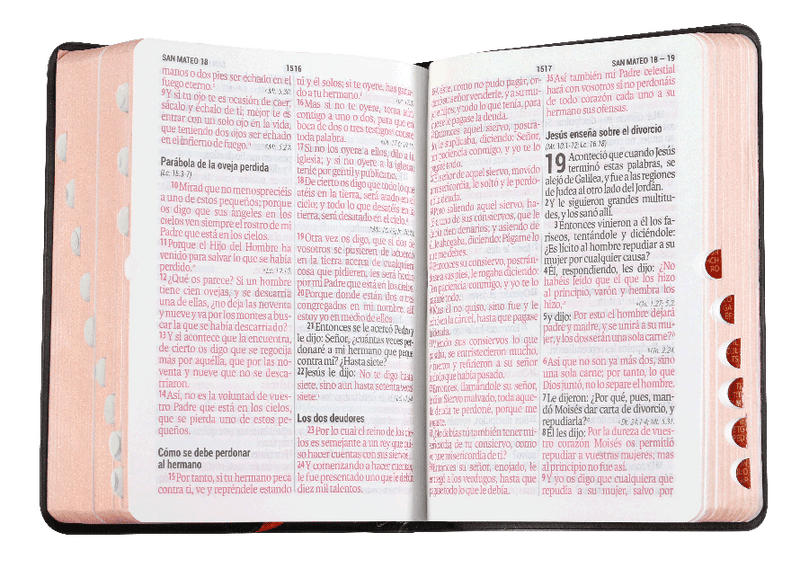 SAN MATEO 18
1516
manos o dos pies ser echado en el
fuego eterno.
9 Y si tu ojo te es ocasión de caer,
sácalo y échalo de ti; mejor te es
entrar con un solo ojo en la vida,
que teniendo dos ojos ser echado
en el infierno de fuego.
Parábola de la oveja perdida
(Lc. 15.3-7)
10 Mirad que no menospreciéis
a uno de estos pequeños; porque
os digo que sus ángeles en los
cielos ven siempre el rostro de mi
Padre que está en los cielos.
11 Porque el Hijo del Hombre ha
venido para salvar lo que se había
perdido.
12 ¿Qué os parece? Si un hombre
tiene cien ovejas, y se descarría
una de ellas, ¿no deja las noventa
y nueve y va por los montes a bus-
car la que se había descarriado?
13 Y si acontece que la encuentra,
de cierto os digo que se regocija
más por aquélla, que por las no-
venta y nueve que no se desca-
rriaron.
14 Así, no es la voluntad de vues-
tro Padre que está en los cielos,
que se pierda uno de estos pe-
queños.
Cómo se debe perdonar
al hermano
15 Por tanto, si tu hermano peca
contra ti, ve y repréndele estando
tú y él solos; si te oyere, has gana-
do a tu hermano.
16 Mas si no te oyere, toma aún
contigo a uno o dos, para que en
boca de dos o tres testigos conste
toda palabra.
17 Si no los oyere a ellos, dilo a la
iglesia; y si no oyere a la iglesia,
tenle por gentil y publicano.
18 De cierto os digo que todo lo que
atéis en la tierra, será atado en el
cielo; y todo lo que desatéis en la
tierra, será desatado en el cielo.
19 Otra vez os digo, que si dos de
vosotros se pusieren de acuerdo
en la tierra acerca de cualquiera
cosa que pidieren, les será hecho
por mi Padre que está en los cielos.
20 Porque donde están dos o tres
congregados en mi nombre, allí
estoy yo en medio de ellos.
21 Entonces se le acercó Pedro y
le dijo: Señor, ¿cuántas veces per-
donaré a mi hermano que peque
contra mí? ¿Hasta siete?
22 Jesús le dijo: No te digo hasta
siete, sino aun hasta setenta veces
siete.
Los dos deudores
23 Por lo cual el reino de los cie-
los es semejante a un rey que qui-
so hacer cuentas con sus siervos.
24 Y comenzando a hacer cuentas,
le fue presentado uno que le debía
diez mil talentos.
1517
SAN MATEO 18 – 19
éste, como no pudo pagar, or-
señor venderle, y a su mu-
hijos, y todo lo que tenía, para
se le pagase la deuda.
Entonces aquel siervo, postra-
le suplicaba, diciendo: Señor,
paciencia conmigo, y yo te lo
pagaré todo.
señor de aquel siervo, movido
misericordia, le soltó y le perdo-
la deuda.
saliendo aquel siervo, ha-
uno de sus consiervos, que le
cien denarios; y asiendo de
ahogaba, diciendo: Págame lo
que me debes.
Entonces su consiervo, postrán-
a sus pies, le rogaba diciendo:
paciencia conmigo, y yo te lo
pagaré todo.
Mas él no quiso, sino fue y le
en la cárcel, hasta que pagase
la deuda.
Viendo sus consiervos lo que
pasaba, se entristecieron mucho,
y refirieron a su señor
lo que había pasado.
Entonces, llamándole su señor,
le dijo: Siervo malvado, toda aque-
deuda te perdoné, porque me
rogaste.
¿No debías tú también tener mi-
sericordia de tu consiervo, como
yo tuve misericordia de ti?
Entonces su señor, enojado, le
entregó a los verdugos, hasta que
pagase todo lo que le debía.
35 Así también mi Padre celestial
hará con vosotros si no perdonáis
de todo corazón cada uno a su
hermano sus ofensas.
Jesús enseña sobre el divorcio
(Mr. 10.1-12; Lc. 16.18)
19 Aconteció que cuando Jesús
terminó estas palabras, se
alejó de Galilea, y fue a las regiones
de Judea al otro lado del Jordán.
2 Y le siguieron grandes multitu-
des, y los sanó allí.
3 Entonces vinieron a él los fa-
riseos, tentándole y diciéndole:
¿Es lícito al hombre repudiar a su
mujer por cualquier causa?
4 Él, respondiendo, les dijo: ¿No
habéis leído que el que los hizo
al principio, varón y hembra los
hizo,
5 y dijo: Por esto el hombre dejará
padre y madre, y se unirá a su mu-
jer, y los dos serán una sola carne?
6 Así que no son ya más dos, sino
una sola carne; por tanto, lo que
Dios juntó, no lo separe el hombre.
7 Le dijeron: ¿Por qué, pues, man-
dó Moisés dar carta de divorcio, y
repudiarla?
8 Él les dijo: Por la dureza de vues-
tro corazón Moisés os permitió
repudiar a vuestras mujeres; mas
al principio no fue así.
9 Y yo os digo que cualquiera que
repudia a su mujer, salvo por